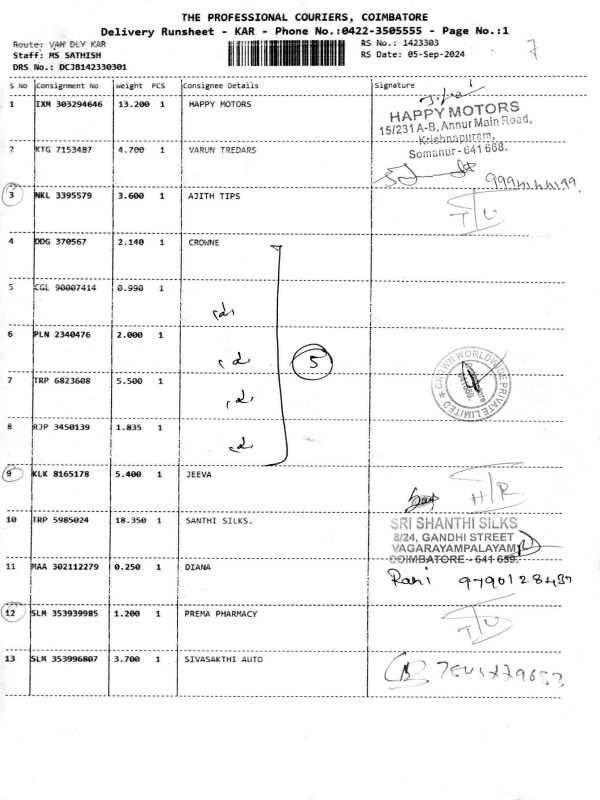 THE PROFESSIONAL COURIERS, COIMBATORE
Delivery Runsheet - KAR - Phone No.:0422-3505555 - Page No.:1
Route: VAN DLY KAR RS No.: 1423303
Staff: MS SATHISH RS Date: 05-Sep-2024 7
DRS No.: DCJB142330301
S No Consignment No Weight PCS Consignee Details Signature
1 IXM 303294646 13.200 1 HAPPY MOTORS
HAPPY MOTORS
15/231 A-B, Annur Main Road,
Krishnapuram,
Somanur - 641 668.
2 KTG 7153487 4.700 1 VARUN TREDARS
3 NKL 3395579 3.600 1 AJITH TIPS
T/U
4 DDG 370567 2.140 1 CROWNE
5 CGL 90007414 0.990 1
6 PLN 2340476 2.000 1
5
7 TRP 6823608 5.500 1
CROWN WORLDWIDE PRIVATE LIMITED
8 RJP 3450139 1.835 1
9 KLK 8165178 5.400 1 JEEVA
H/R
10 TRP 5985024 18.350 1 SANTHI SILKS.
SRI SHANTHI SILKS
8/24, GANDHI STREET
VAGARAYAMPALAYAM
COIMBATORE - 641 659.
11 MAA 302112279 0.250 1 DIANA
Rani
12 SLM 353939985 1.200 1 PREMA PHARMACY
T/U
13 SLM 353996807 3.700 1 SIVASAKTHI AUTO